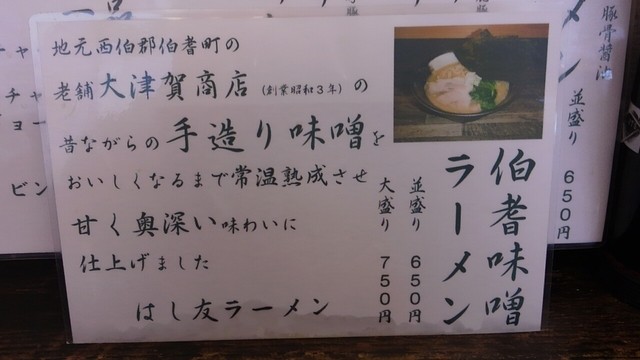 地元西伯郡伯耆町の
老舗大津賀商店(創業昭和3年)の
昔ながらの手造り味噌を
おいしくなるまで常温熟成させ
甘く奥深い味わいに
仕上げました
はし友ラーメン
伯耆味噌
ラーメン
並盛り 650円
大盛り 750円
豚骨醤油
並盛り 650円